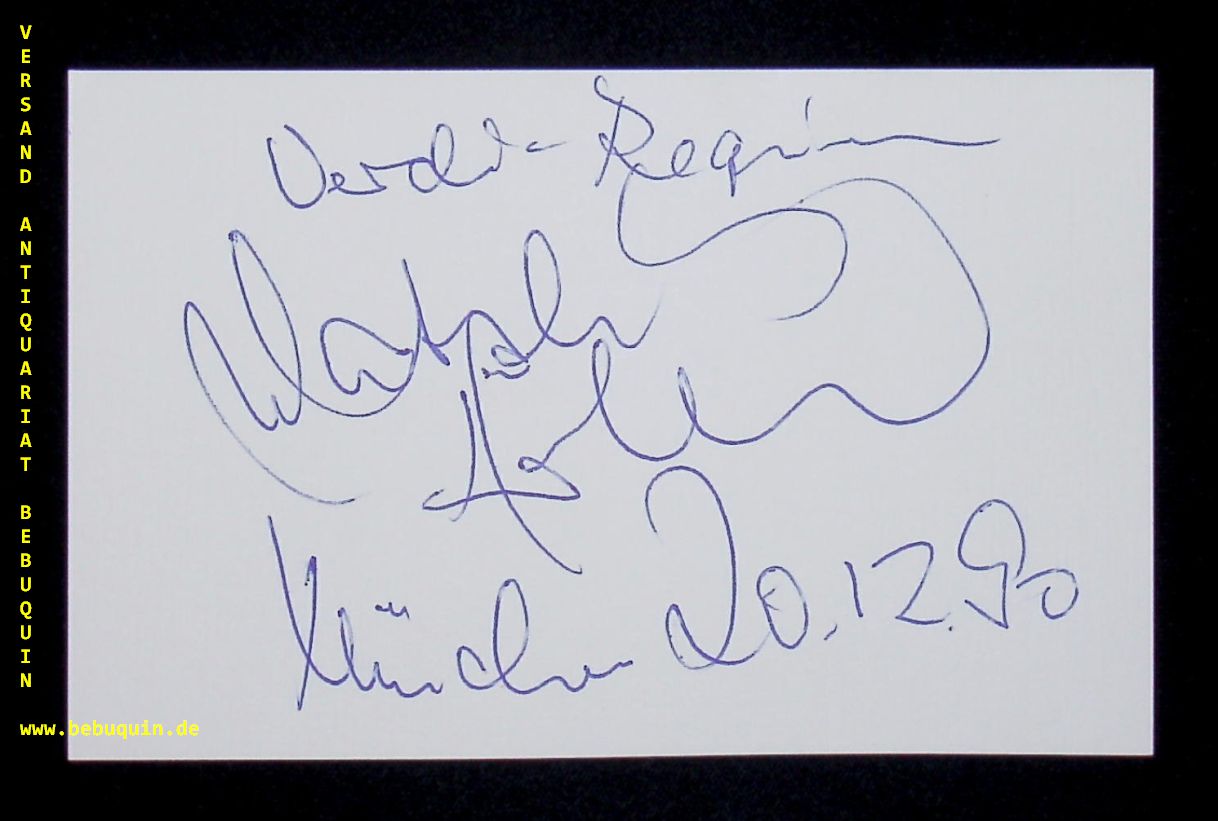 VERSAND ANTIQUARIAT BEBUQUIN
Verdi-Requiem
München 20.12.90
www.bebuquin.de